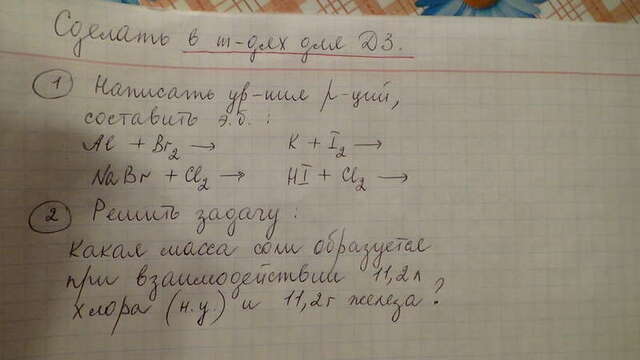 Сделать в т-дях для ДЗ.
1 Написать ур-ния р-ций,
составить э.б. :
Al + Br2 → K + I2 →
NaBr + Cl2 → HI + Cl2 →
2 Решить задачу :
Какая масса соли образуется
при взаимодействии 11,2л
хлора (н.у.) и 11,2г железа?